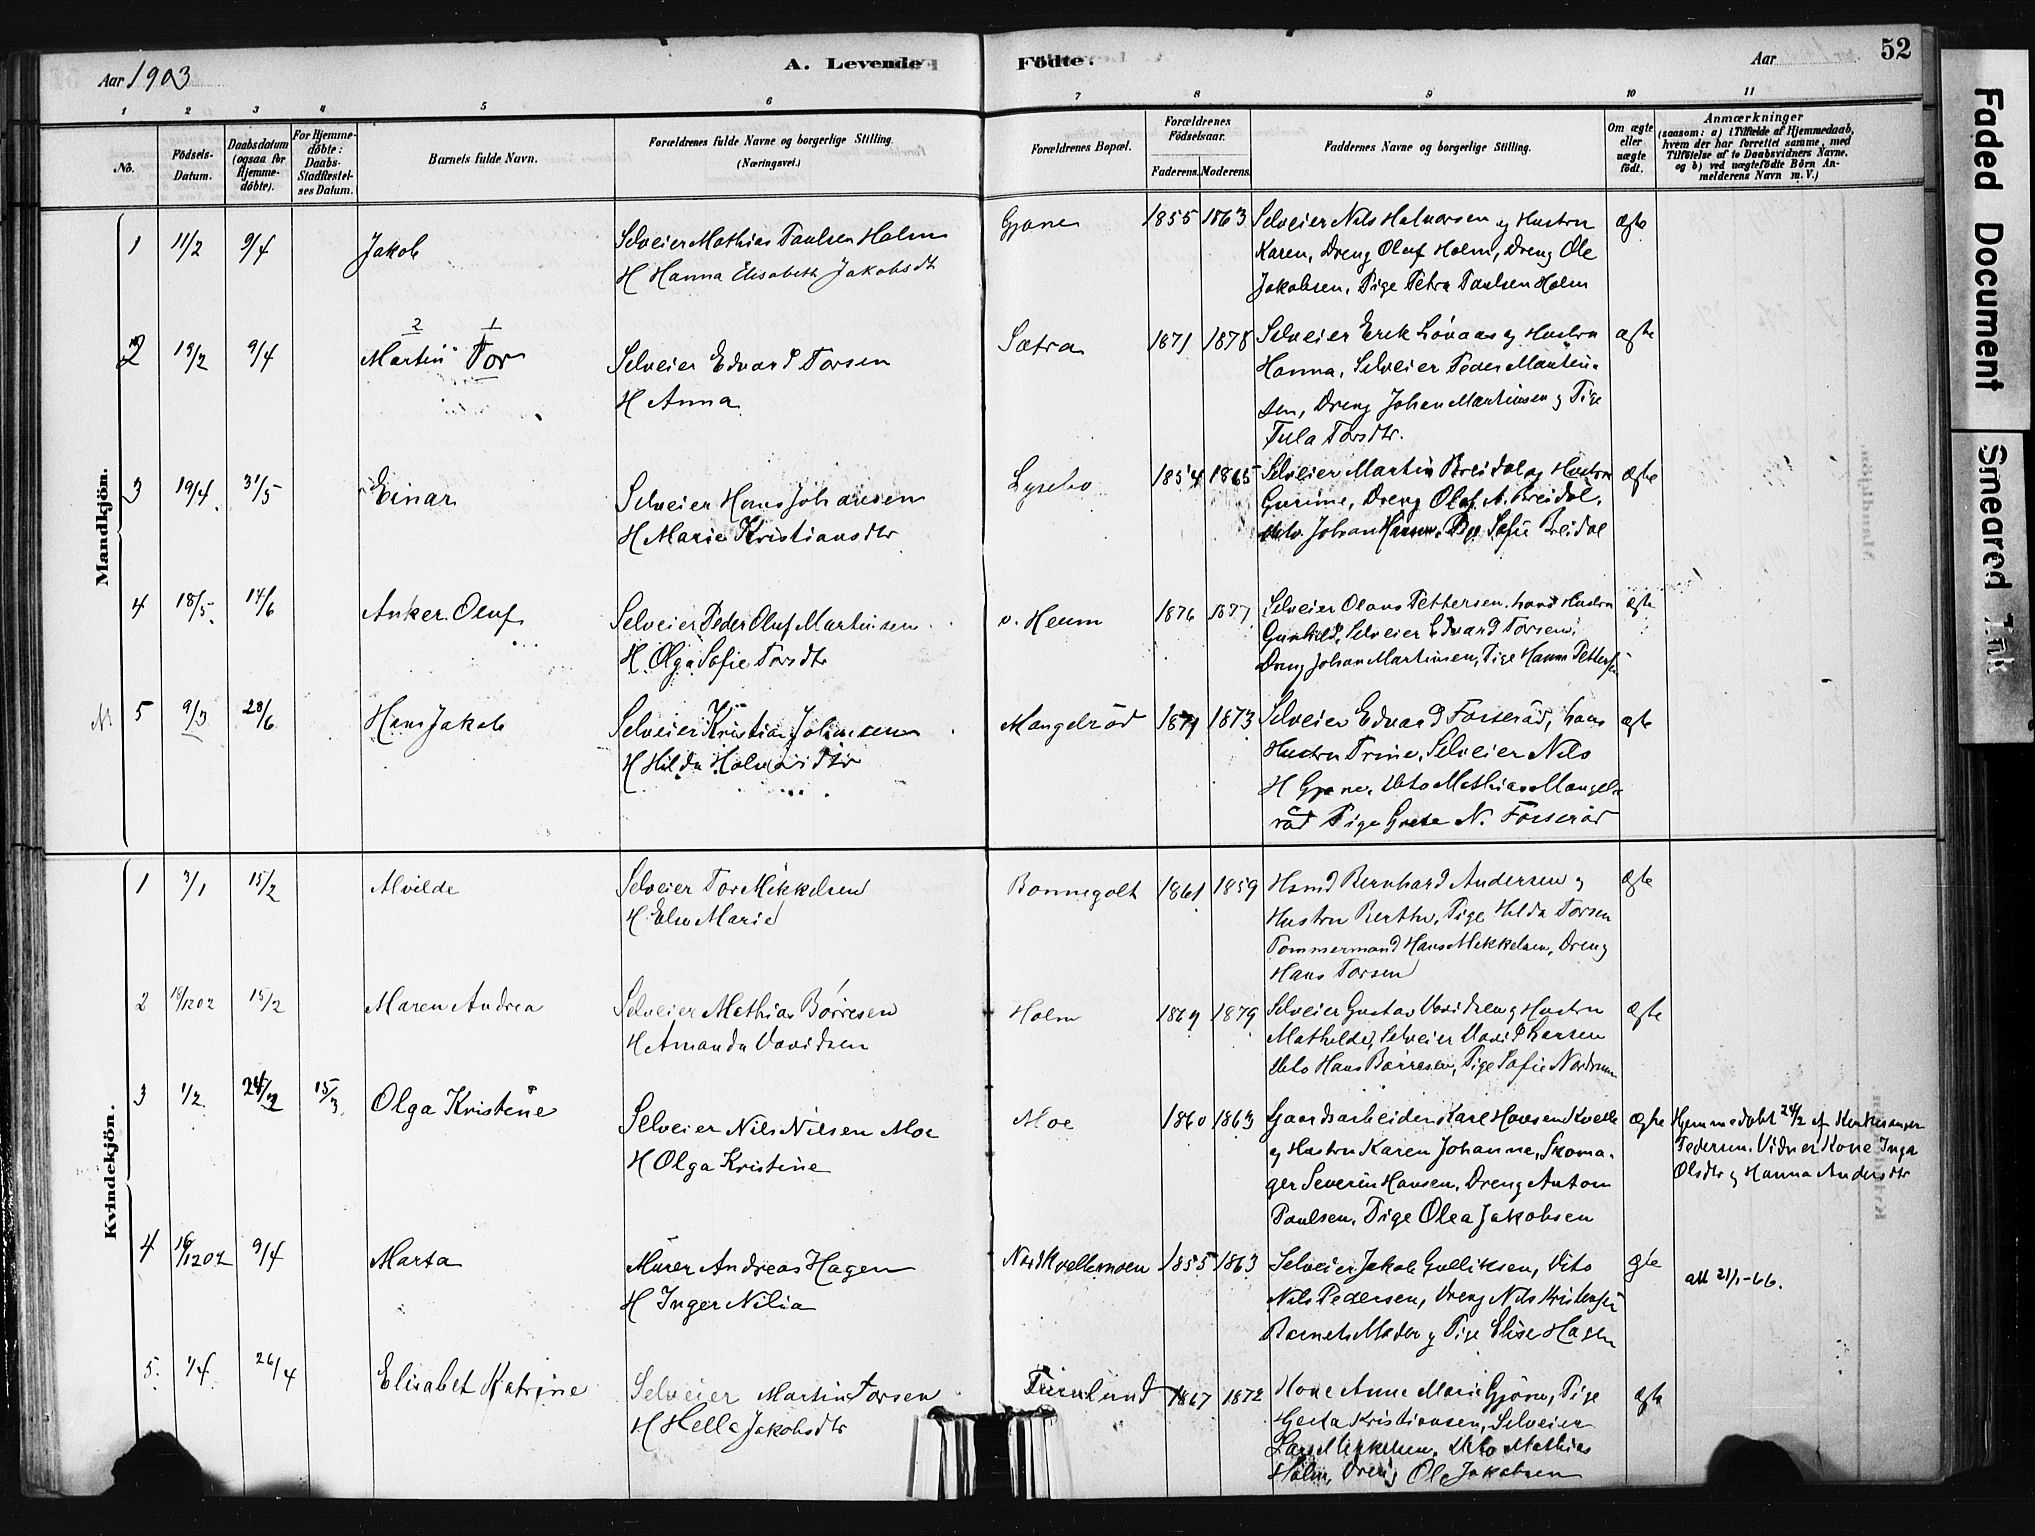 Aar 1903
A. Levende
Fødte.
Aar
52
1 2 3 4 5 6 7 8 9 10 11
No.
Fødsels-Datum.
Daabsdatum (ogsaa for Hjemmedøbte).
For Hjemmedøbte: Daabs-Stadfæstelses Datum.
Barnets fulde Navn.
Forældrenes fulde Navne og borgerlige Stilling. (Næringsvei.)
Forældrenes Bopæl.
Forældrenes Fødselsaar.
Faderens. Moderens.
Faddernes Navne og borgerlige Stilling.
Om ægte eller uægte født.
Anmærkninger
(saasom: a) i Tilfælde af Hjemmedaab,
hvem der har forrettet samme, med
Tilføielse af to Daabsvidners Navne.
og b) ved uægtefødte Børn Anmelderens Navn m. V.)
Mandkjön.
1 11/2 9/4 Jakob
Selveier Mathias Paulsen Holm
H Hanna Elisabeth Jakobsdt
Gjone 1855 1863
Selveier Nils Halvorsen og Hustru
Karen, Dreng Oluf Holm, Dreng Ole
Jakobsen, Pige Petra Paulsen Holm
ægte
2 1
2 19/2 9/4 Martin Tor
Selveier Edvard Torsen
H Anna
Sætra 1871 1878
Selveier Erik Løvaas og Hustru
Hanna, Selveier Peder Martin-
sen, Dreng Johan Martinsen og Pige
Tula Torsdtr.
ægte
3 19/4 31/5 Einar
Selveier Hans Johansen
H Marie Kristiansdtr
Lysebo 1854 1865
Selveier Martin Breidal og Hustru
Gurine, Dreng Olaf A. Breidal,
dito Johan Hansen, Pige Sofie Breidal
ægte
4 18/5 14/6 Anker Oluf
Selveier Peder Oluf Martinsen
H. Olga Sofie Torsdtr
v. Heum 1876 1877
Selveier Olaus Pettersen, hans Hustru
Gunhild, Selveier Edvard Torsen,
Dreng Johan Martinsen, Pige Hanna Pettersen
ægte
M 5 9/3 28/6 Hans Jakob
Selveier Kristian Johansen
H Hilda Halvorsdtr
Mangelrød 1871 1873
Selveier Edvard Fosserød, hans
Hustru Trine, Selveier Nils
H Gjone, dito Mathias Mangel-
rød Pige Grete N. Fosserød
ægte
Kvindekjön.
1 3/1 15/2 Alvilde
Selveier Tor Mikkelsen
H. Else Marie
Bonnegolt 1861 1859
Hsmd Bernhard Andersen og
Hustru Berthe, Pige Hilda Torsen
Tømmermand Hans Mikkelsen, Dreng
Hans Torsen
ægte
2 18/12 02 15/2 Maren Andrea
Selveier Mathias Børresen
H Amanda Davidsen
Holm 1869 1879
Selveier Gustav Davidsen og Hustru
Mathilde, Selveier David Larsen
dito Hans Børresen, Pige Sofie Nordrum
ægte
3 1/2 24/2 15/3 Olga Kristine
Selveier Nils Nilsen Moe
H Olga Kristine
Moe 1860 1863
Gaardsarbeider Karl Hansen Kvelle
og Hustru Karen Johanne, Skoma-
ger Severin Hansen, Dreng Anton
Paulsen, Pige Olea Jakobsen
ægte
Hjemmedøbt 24/2 af Kirkesanger
Pedersen. Vidner Kone Inga
Olsdtr og Hanna Andersdtr
4 16/12 02 9/4 Marta
Murer Andreas Hagen
H Inger Nilia
Nordkvellemoen 1855 1863
Selveier Jakob Gulliksen, Dito
Nils Pedersen, Dreng Nils Kristensen
Barnets Moder og Pige Elise Hagen
ægte
att 21/1-66.
5. 1/4 26/4 Elisabet Katrine
Selveier Martin Torsen
H Helle Jakobsdtr
1867 1872
Kone Anne Marie Gjone, Pige
Kristiansen, Selveier
Lars Mikkelsen, Dito Mathias
Holm, Dreng Ole Jakobsen
ægte
Faded Document
Smeared Ink